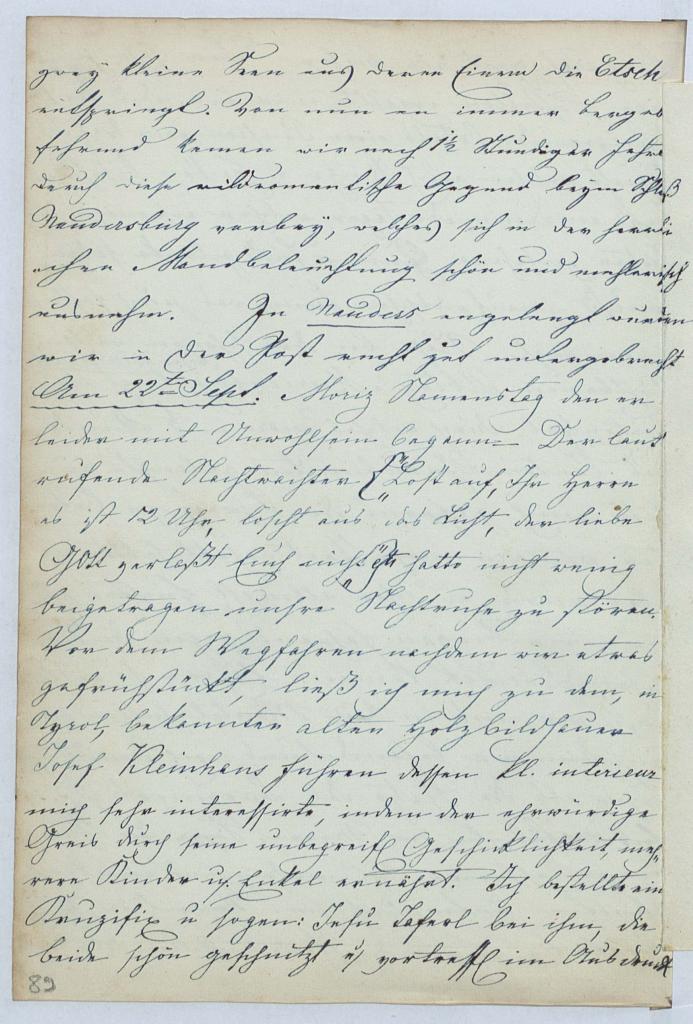 zwey kleine Seen aus deren Einem die Etsch
entspringt. Von nun an immer bergab
fahrend kamen wir nach 1½ Stündiger Fahrt
durch diese wildromantische Gegend beym Schloß
Naudersburg vorbey, welches sich in der herrli
chen Mondbeleuchtung schön und mahlerisch
ausnahm. In Nauders angelangt wurden
wir in der Post recht gut untergebracht
Am 22t Sept. Moriz Namenstag den er
leider mit Unwohlsein begann – Der laut
rufende Nachtwächter („Lost auf, Ihr Herrn
es ist 12 Uhr, löscht aus das Licht, der liebe
Gott verlaßt Euch nicht“) hatte nicht wenig
beigetragen unsre Nachtruhe zu stören.
Vor dem Wegfahren nachdem wir etwas
gefrühstückt, ließ ich mich zu dem, in
Tyrol, bekannten alten Holzbildhauer
Josef Kleinhans führen dessen kl. interieur
mich sehr interessirte, indem der ehrwürdige
Greis durch seine unbegreifl Geschicklichkeit, meh,
rere Kinder u. Enkel ernährt. Ich bestellte ein
Kruzifix u sogen: Jesu Taferl bei ihm, die
beide schön geschnitzt u. vortreffl im Ausdruck
89